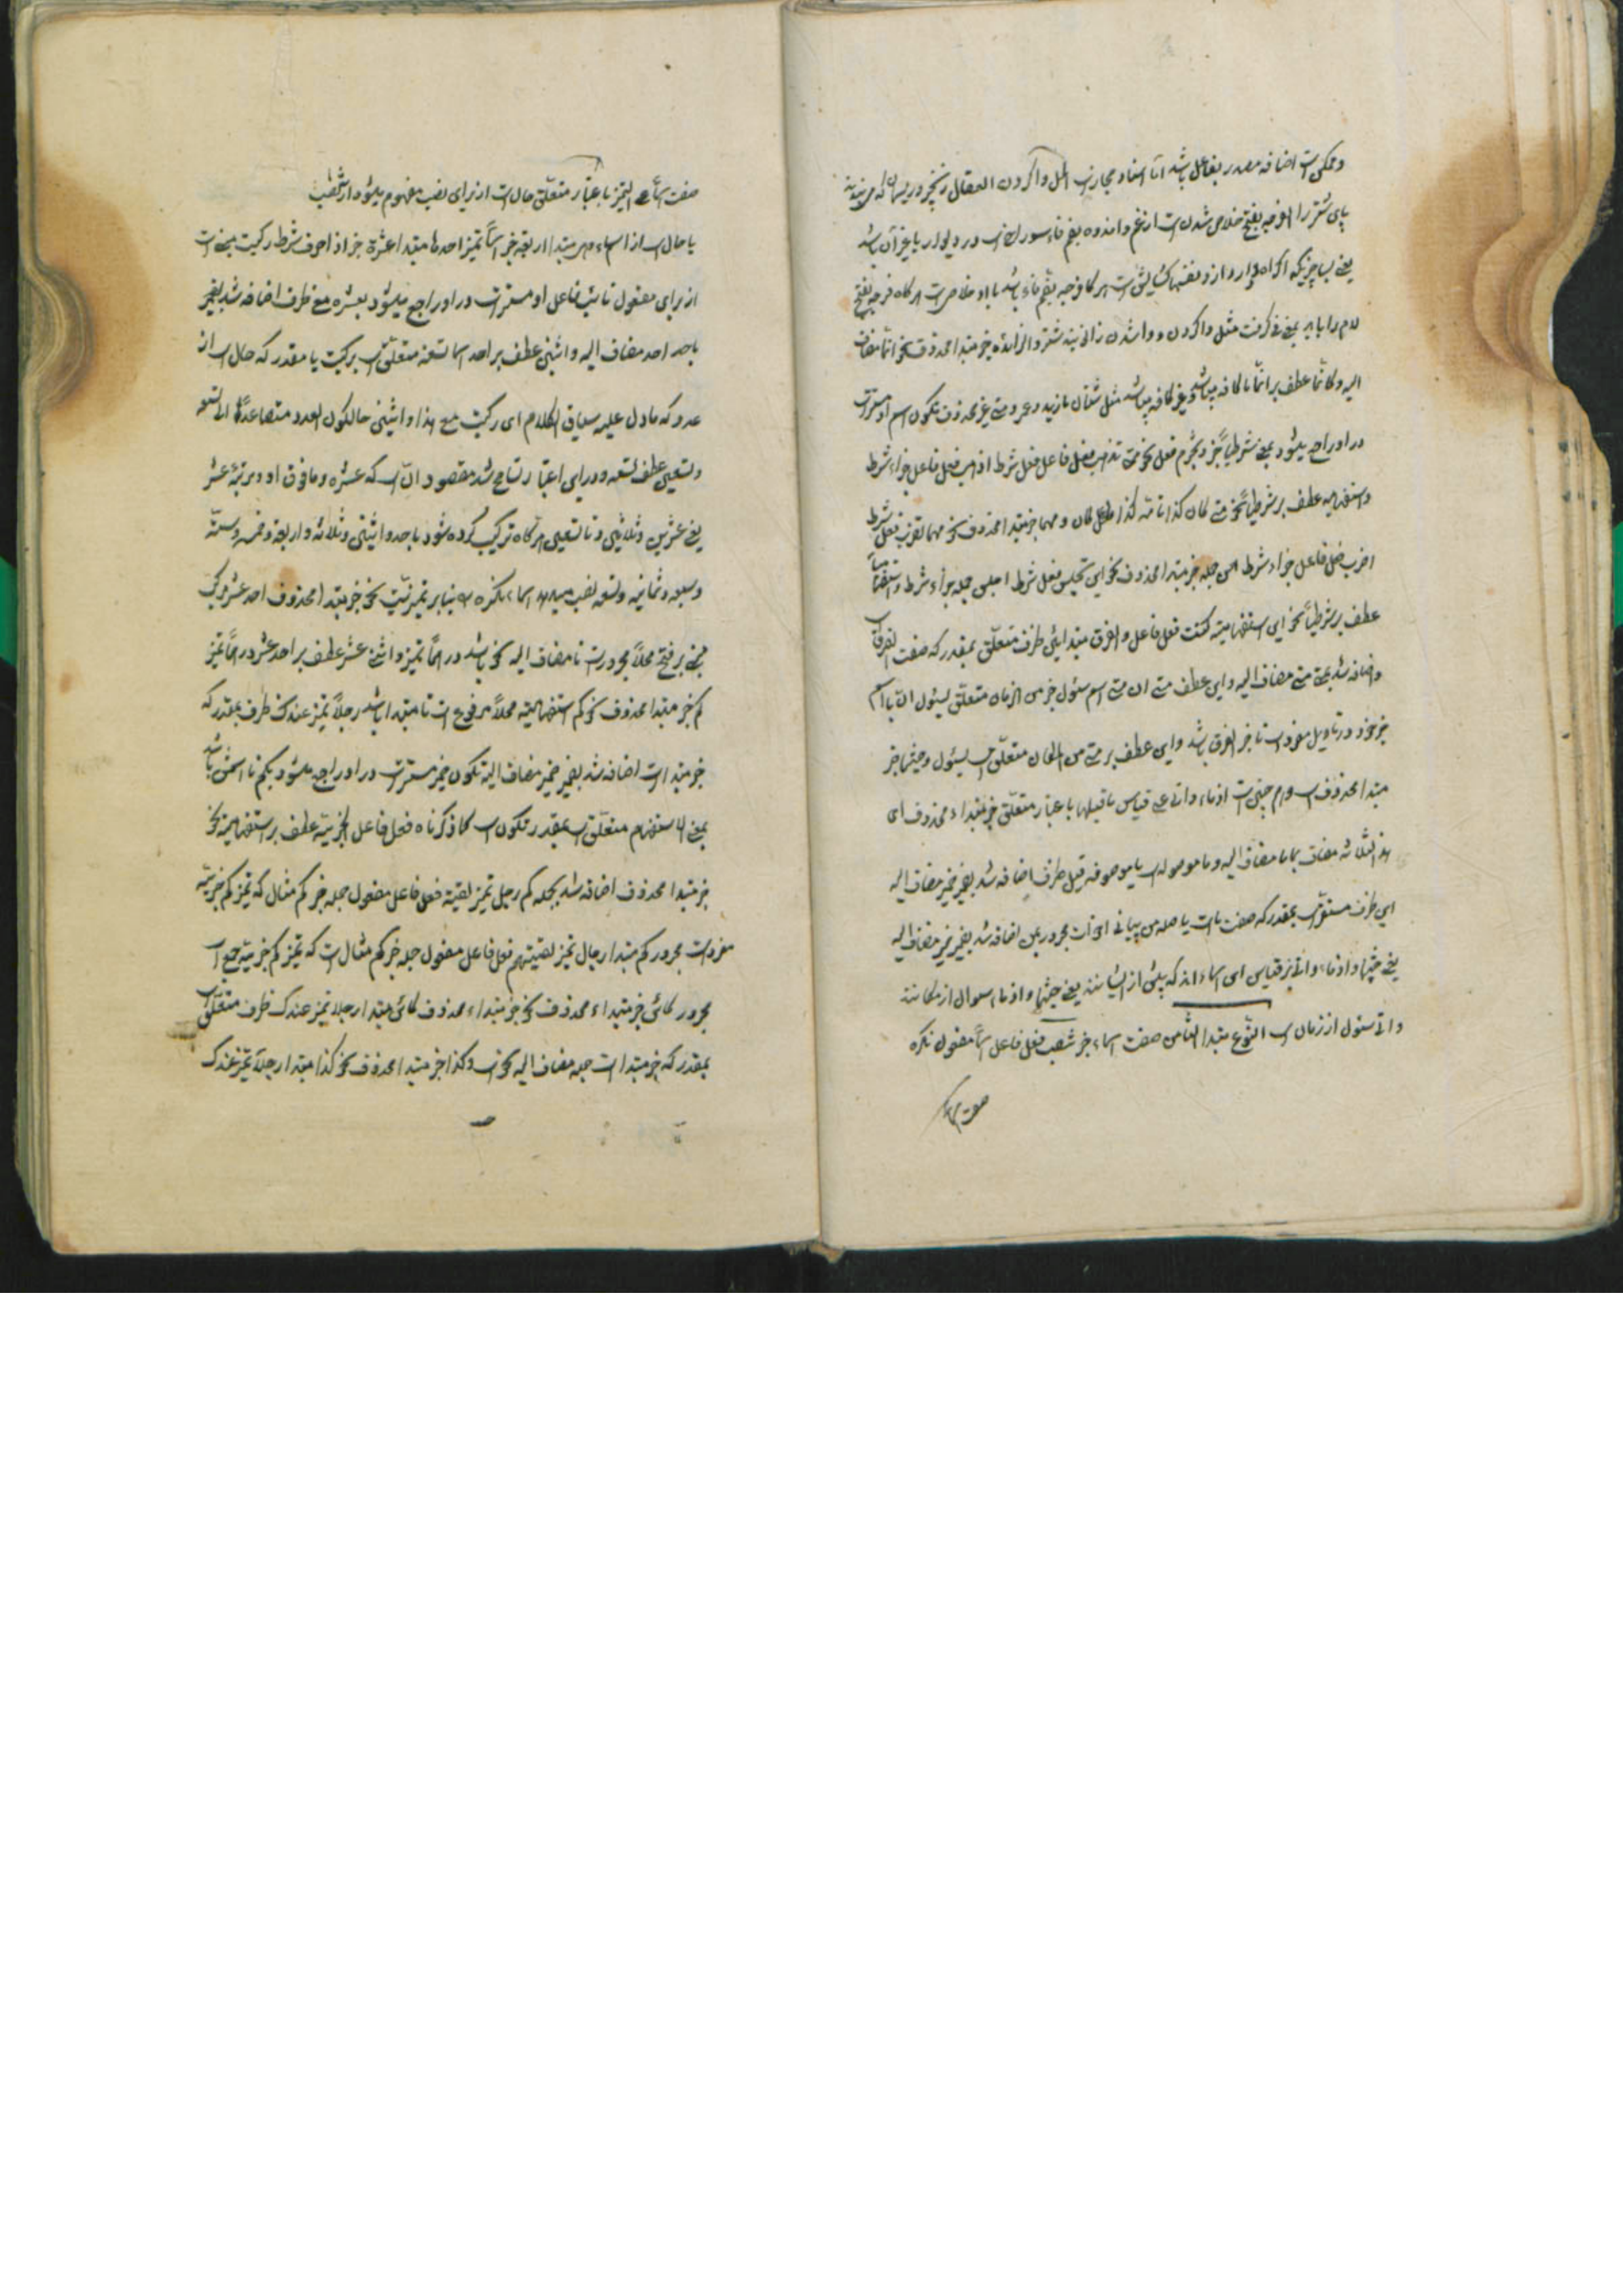 و ممکن است اضافه مصدر بفاعل باشد اما اسناد مجاز است الحل واکردن العقال زنجیر و ریسمان که می بندند
پای شتر را الفرجه بفتح خلاص شدنست از غم و اندوه بضم فاء سوراخست در دیوار یا غیر آن باشد
یعنی بسا چیزیکه اکراه دارد از و نفسها کشایشست هر گاه فرجه بضم فاء باشد یا او خلاصی است هر گاه فرجه بفتح
لام را باید بمعنی گرفت مثل واکردن و واشدن زانی بند شتر و الزائده خبر مبتدا محذوف نحو انما مضاف
الیه و کانما عطف بر انما ما کافه میباشد و غیر کافه میباشد مثل شتان ما زید و عمرو متی غیر محذوف تکون اسم او مستتر است
در او راجع میشود بمتی شرطیا خبر و یجزم فعل نحو متی تذهب فعل فاعل فعل شرط اذهب فعل فاعل جزاء شرط
و استفهامیه عطف بر شرطیا نحو متی کان کذا تامه کذا فاعل کان و مهما خبر مبتدا محذوف نحو مهما تضرب فعل شرط
اضرب فعل فاعل جزاء شرط این جمله خبر مبتدا محذوف نحو این تجلس فعل شرط اجلس جمله جزاء شرط و استفهامیا
عطف بر شرطیا نحو این استفهامیه کنت فعل فاعل و الفرق مبتدا بین ظرف متعلق بمقدر که صفت الفرق است
و اضافه شد بمتی متی مضاف الیه و این عطف متی ان متی اسم سئول خبر من الزمان متعلق لیسئول ان با اسم
خبر خود در تاویل مفرد است تا خبر الفرق باشد و این عطف بر متی من المکان متعلق است لیسئول و حیثما خبر
مبتدا محذوف است و اذما و انی علی قیاس ما قبلها باعتبار متعلق خبر مبتداء محذوف ای
هذه الثلاثه مضاف بما ما مضاف الیه و ما موصوله است یا موصوفه قبل ظرف اضافه شد بضمیر ضمیر مضاف الیه
این ظرف مستقر است بمقدر که صفت ما است یا صله من بیانی اخوات مجرور بمن اضافه شد بضمیر ضمیر مضاف الیه
یعنی حیثما و اذما و انی بر قیاس این اسماء اند که پیش از ایشانند یعنی حیثما و اذما سوال از مکانند
و انی سئول از زمان است النوع مبتدا الثامن صفت اسماء خبر تنصب فعل فاعل اسما مفعول نکره
صفت اسماء
صفت اسما علی التمیز باعتبار متعلق حال است از برای نصب مفهوم میشود از تنصب
یا حال است از اسماء و هی مبتدا اربعه خبر اسما تمیز احدها مبتدا عشرة خبر اذا حرف شرط رکبت مبنی است
از برای مفعول نائب فاعل او مستتر است در او راجع میشود بعشره مع ظرف اضافه شد بضمیر
باحد احد مضاف الیه و اثنین عطف بر احد الی تسعة متعلق است برکبت یا مقدر که حال است از
عدد که ما دل علیه سیاق الکلام ای رکبت مع هذا و اثنین حالکون العدد متصاعدا الی تسعه
و تسعین عطف تسعه و در این اعتبار تسامح شد مقصود آنست که عشره و ما فوق او در مرتبه عشر
یعنی عشرین و ثلاثین و تا تسعین هر گاه ترکیب کرده شود باحد و اثنین و ثلاثه و اربعه و خمسه و سته
و سبعه و ثمانیه و تسعه نصب میدهد اسماء نکره را بنابر تمیزیت نحو خبر مبتدا محذوف احد عشر مرکب
مبنی بر فتح محلا مجرور است تا مضاف الیه نحو باشد درهما تمیز و اثنی عشر عطف بر احد عشر درهما تمیز
کم خبر مبتدا محذوف نحو کم استفهامیه محلا مرفوع است تا مبتدا باشد رجلا تمیز عندک ظرف بمقدر که
خبر مبتدا است اضافه شد بضمیر ضمیر مضاف الیه تکون ضمیر مستتر است در او راجع میشود بکم تا اسمش باشد
بمعنی الاستفهام متعلق است بمقدر تکون است کما ذکرناه فعل فاعل الخبریه عطف بر استفهامیه نحو
خبر مبتدا محذوف اضافه شد بجمله کم رجل تمیز لقیته فعل فاعل مفعول جمله خبر کم مثال که تمیز کم خبریه
مفرد است مجرور کم مبتدا رجال تمیز لقیتهم فعل فاعل مفعول جمله خبر کم مثال است که تمیز کم خبریه جمع است
مجرور کائن خبر مبتداء محذوف نحو خبر مبتداء محذوف کائن مبتدا رجلا تمیز عندک ظرف متعلق است
بمقدر که خبر مبتدا است جمله مضاف الیه نحو است و کذا خبر مبتدا محذوف نحو کذا مبتدا رجلا تمیز عندک